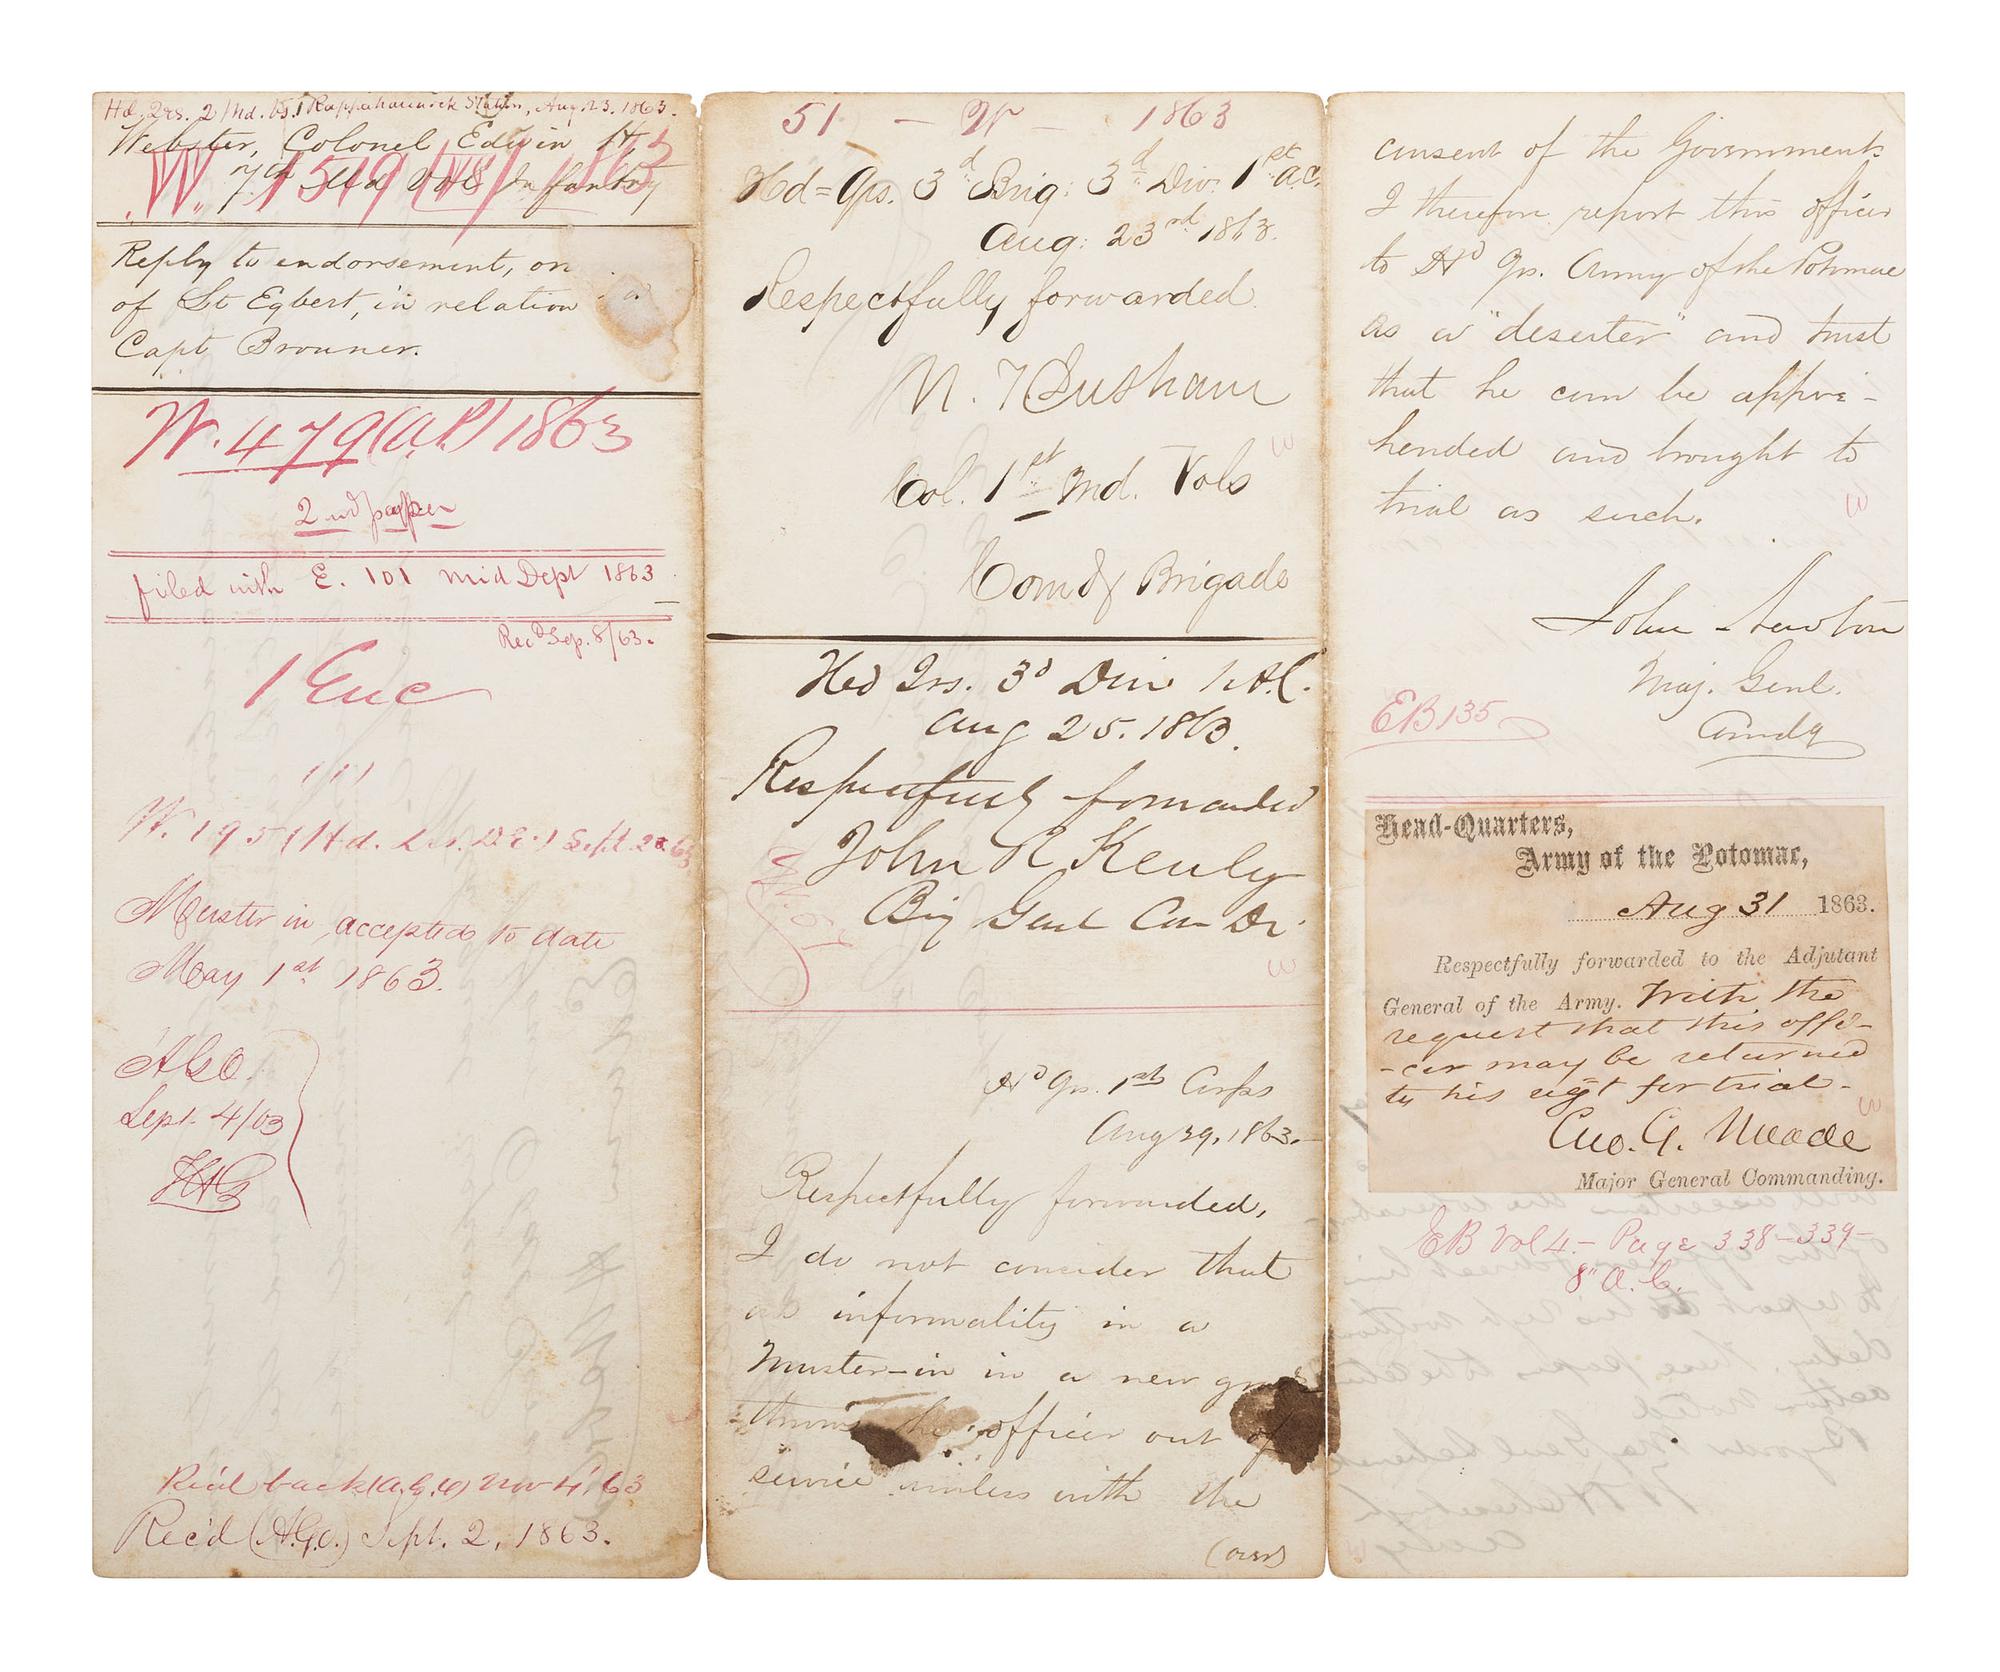 Hd. Qrs. 7 Md. V. Rappahannock Station, Aug. 23. 1863.
Webster, Colonel Edwin H.
W 1519 1863
7th Md Vols Infantry
Reply to endorsement, on
of Lt Egbert, in relation
Capt Brouner.
W. 479 (A.P.) 1863
2nd paper
filed with E. 101 Mid Dept 1863
Rec'd Sep. 8/63.
1 Enc
W. 195 (Hd. Sept. 63
Muster in accepted to date
May 1st 1863.
AGO.
Sept. 4/63
Rec'd back (A.G.O) Nov 4, 63
Rec'd (A.G.O.) Sept. 2, 1863.
51 — W — 1863
Hd = Qrs. 3d Brig: 3d Div: 1st A.C.
Aug: 23rd 1863.
Respectfully forwarded
N. T. Dushane
Col. 1st Md. Vols
Comdg Brigade
Hed Qrs. 3d Div 1 A.C.
Aug 25. 1863.
Respectfully forwarded
John R Kenly
Brig Genl Com Dv.
Hd Qrs. 1st Corps
Aug 29, 1863.
Respectfully forwarded,
I do not consider that
an informality in a
muster-in in a new grade
throws the officer out of
service unless with the
(over)
consent of the Government.
I therefore report this officer
to Hd Qrs. Army of the Potomac
as a "deserter" and trust
that he can be appre-
hended and brought to
trial as such.
John Newton
Maj. Genl.
Comdg
EB 135
Head-Quarters,
Army of the Potomac,
Aug 31 1863.
Respectfully forwarded to the Adjutant
General of the Army. With the
request that this offi-
-cer may be returned
to his regt for trial-
Geo. G. Meade
Major General Commanding.
EB Vol 4 - Page 338-339-
8" A. C.